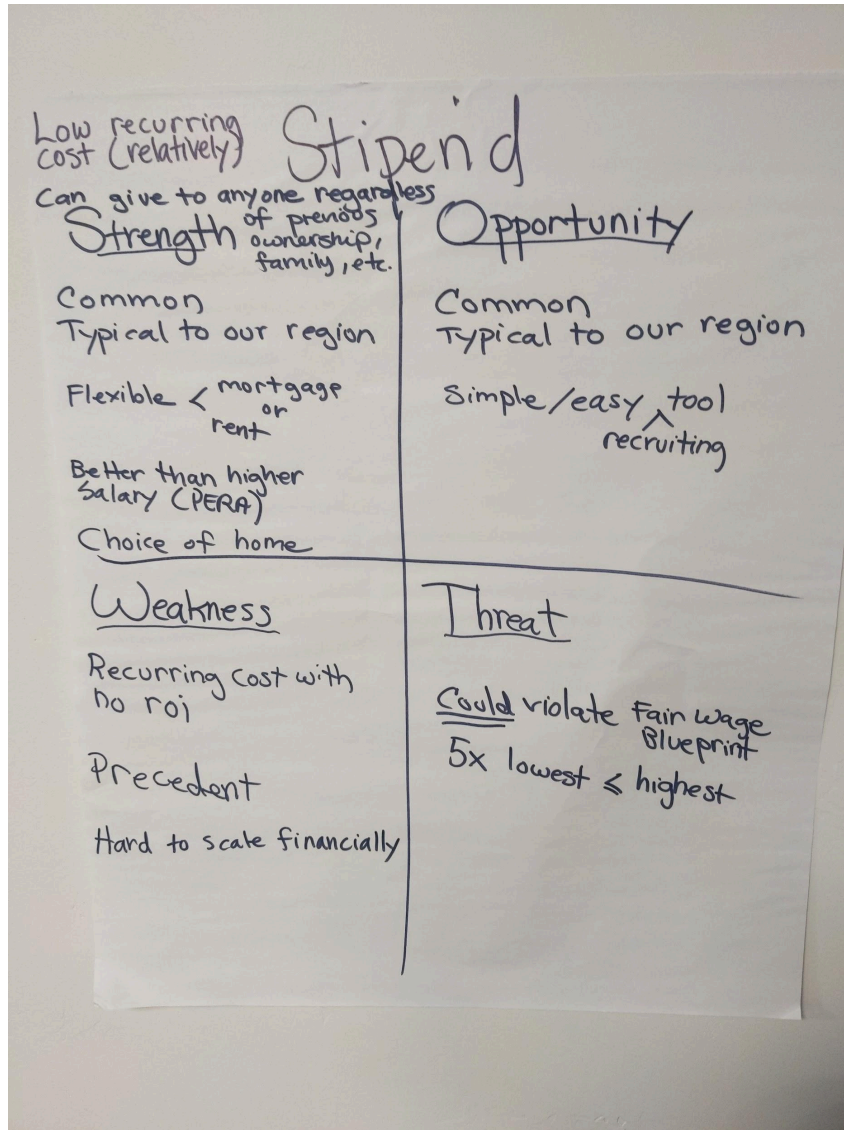 Low recurring
cost (relatively)
Stipend
Can give to anyone regardless
of prenoos
ownership,
family, etc.
Strength
Common
Typical to our region
Flexible < mortgage
or
rent
Better than higher
Salary (PERA)
Choice of home
Opportunity
Common
Typical to our region
Simple/easy ^ tool
recruiting
Weakness
Recurring cost with
no roi
Precedent
Hard to scale financially
Threat
Could violate Fair Wage
Blueprint
5x lowest ≤ highest